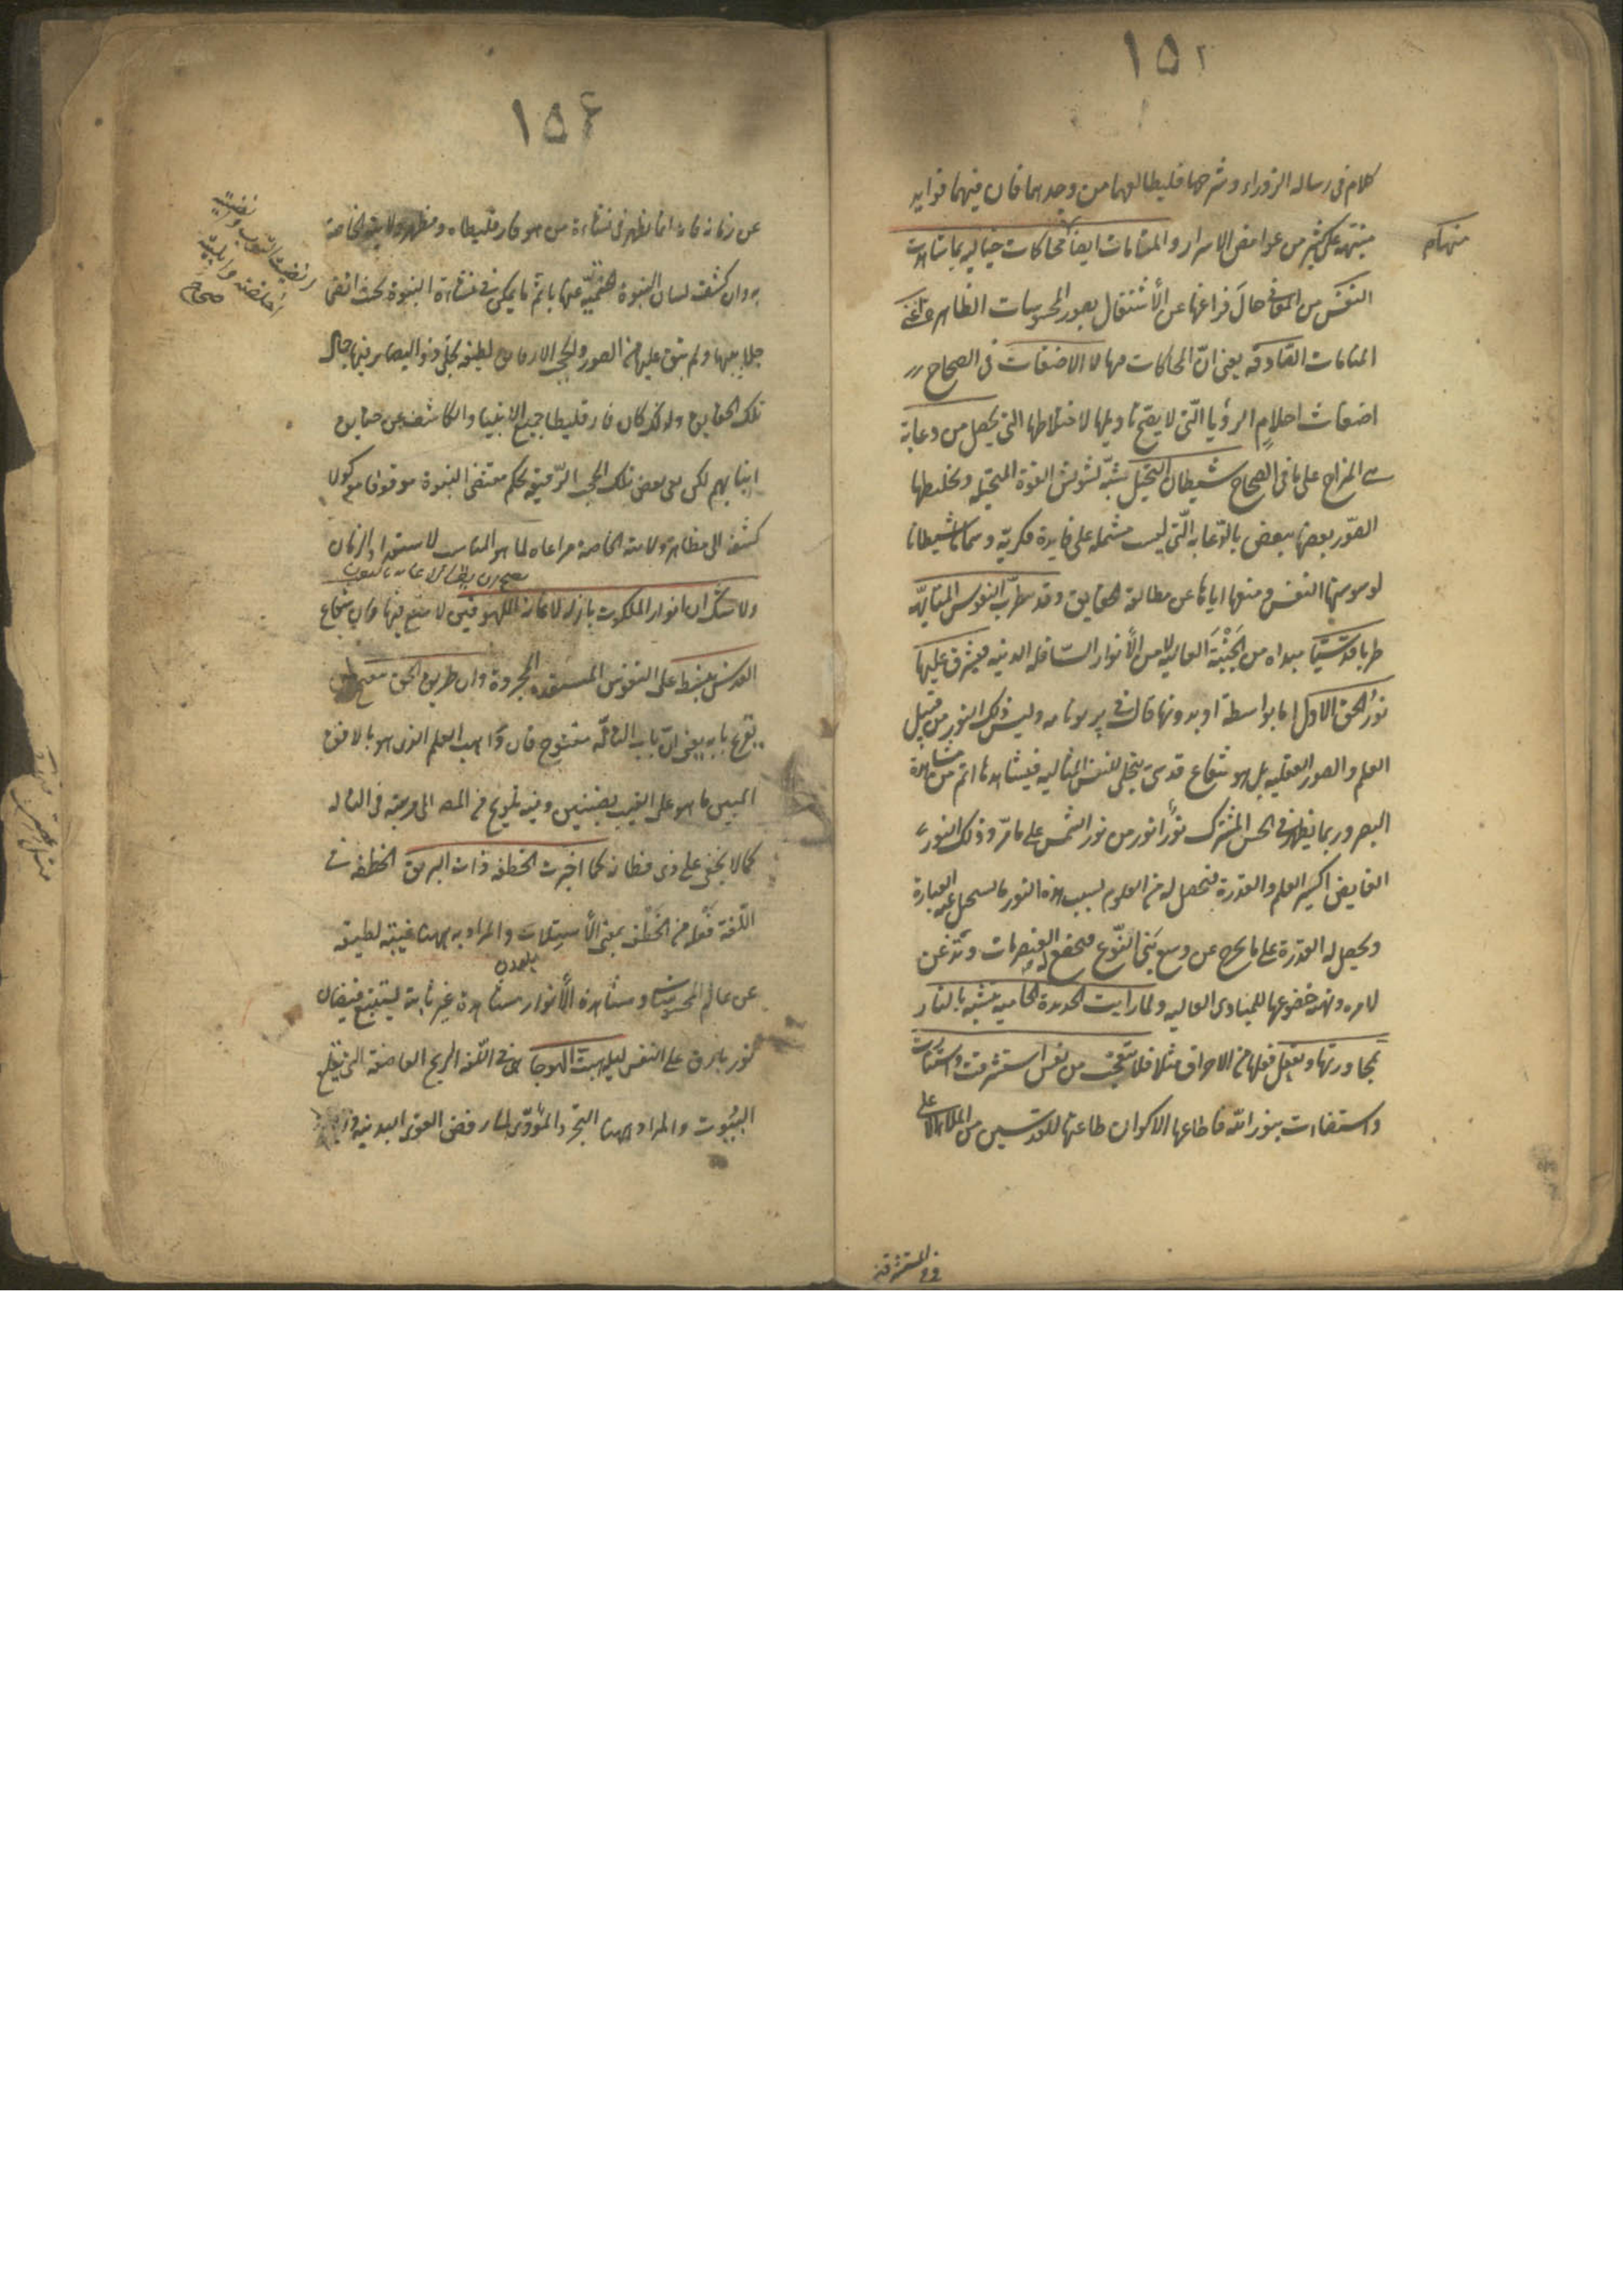 ١٥٢
كلام فى رساله الزوراء و شرحها فليطالعهما من وجدهما فان فيهما فوايد
منبهة على كثير من غوامض الاسرار والمنامات ايضا محاكات خياليه بما شاهدت
منهام
النفس من المعانى حال فراغها عن الأشتغال بصور المحسوسات الظاهره اعنى
المنامات الصادقه يعنى انّ المحاكات منها لا الاضغاث فى الصحاح
اضغاث احلام الرؤيا الّتى لا يصح تاويلها لاختلاطها التى يحصل من دعابة
المزاج على ما فى الصحاح شيطان التخيل شبّه تشويش القوة المتخيله و تخليطها
الصّور بعضها ببعض بالدّعابه الّتى ليست مشتمله على فايدة فكريّه و سماها شيطانا
لوسوستها النفس و منعها اياها عن مطالعة الحقايق و قد تطرب النفوس المتالّهه
طربا قدسيّا مبداه من الجَنْبَة العاليه لا من الأنوار السافله الدنيه فيشرق عليها
نور الحق الاول اما بواسطة او بدونها قال فى پرتونامه وليس ذلك النور من قبيل
العلم والصور العقليه بل هو شعاع قدسى يتجلى للنفس المتاليه فيشاهدها اتم من مشاهدة
البصر وربما يظهر فى الحس المشترك نورًا نور من نور الشمس على ما مرّ وذلك النور
الفايض اكسير العلم والقدرة فتحصل له من العلوم بسبب هذه النور ما يستحيل عنه العبارة
و يحصل له القدرة على ما يخرج عن وسع بنى النّوع فتخضع له العنصريات و تذعن
لامره و نهيه خضوعها للمبادى العاليه ولما رايت الحديدة الحامية تتشبه بالنار
بمجاورتها و تفعل فعلها من الاحراق مثلا فلا تتعجب من نفس استشرقت و استنارت
و استضاءت بنور الله فاطاعها الاكوان طاعتها للقدسيين من الملاء الاعلى
و فى المستشرقين
١٥٤
عن زمانه فانه انما يظهر فى نشاءة من هو فارقليطاه و مظهر ولايته الخاصة
به وان كشفت لسان النبوة الختميّه عنها باتمّ ما يمكن فى نشاءة النبوة بحيث انقى
جلابيبها و لم يبق عليها من الصور والحجب الارقايق لطيفه يجلى ذوا البصاير فيها جمال
تلك الحقايق و لذلك كان فارقليطا جميع الانبيا والكاشف عن حقايق
انبائهم لكن بقى بعض تلك الحجب الرّقيقه بحكم مقتضى النبوة موقوفا موكولا
كشفه الى مظاهر ولايته الخاصة مراعاه لما هو المناسب لاستعداد الزمان
ولا شك ان انوار الملكوت نازله لاغاثة الملهوفين لا منع فيها وان شعاع
القدس ينبسط على النفوس المستعده المجردة وان طريق الحق ينفتح
بقرع بابه يعنى انّ باب التالّه مفتوح فان واهب العلم الذى هو بالافق
المبين ما هو على الغيب بضنين و فيه تلويح من المص الى مرتبته فى التاله
كما لا يخفى على ذى فطانه كما اخبرت الخطفة ذات البريق الخطفه فى
اللّغة فَعْلة من الخَطْف بمعنى الأستلاب والمراد به ههنا غيبته لطيفه
عن عالم المحسوسات و مشاهدة الأنوار مشاهدة غير ثابتة يستتبع فيضان
نور بارق على النفس ليله هبت الهوجاء هى فى اللّغه الريح العاصفة التى تقلع
البيُوت والمراد ههنا التجرد المؤدّى الى رفض القوى البدنيه
نضيت الثوب و
انضيت الثوب وانضيته
اخلقته وابليته
صحاح